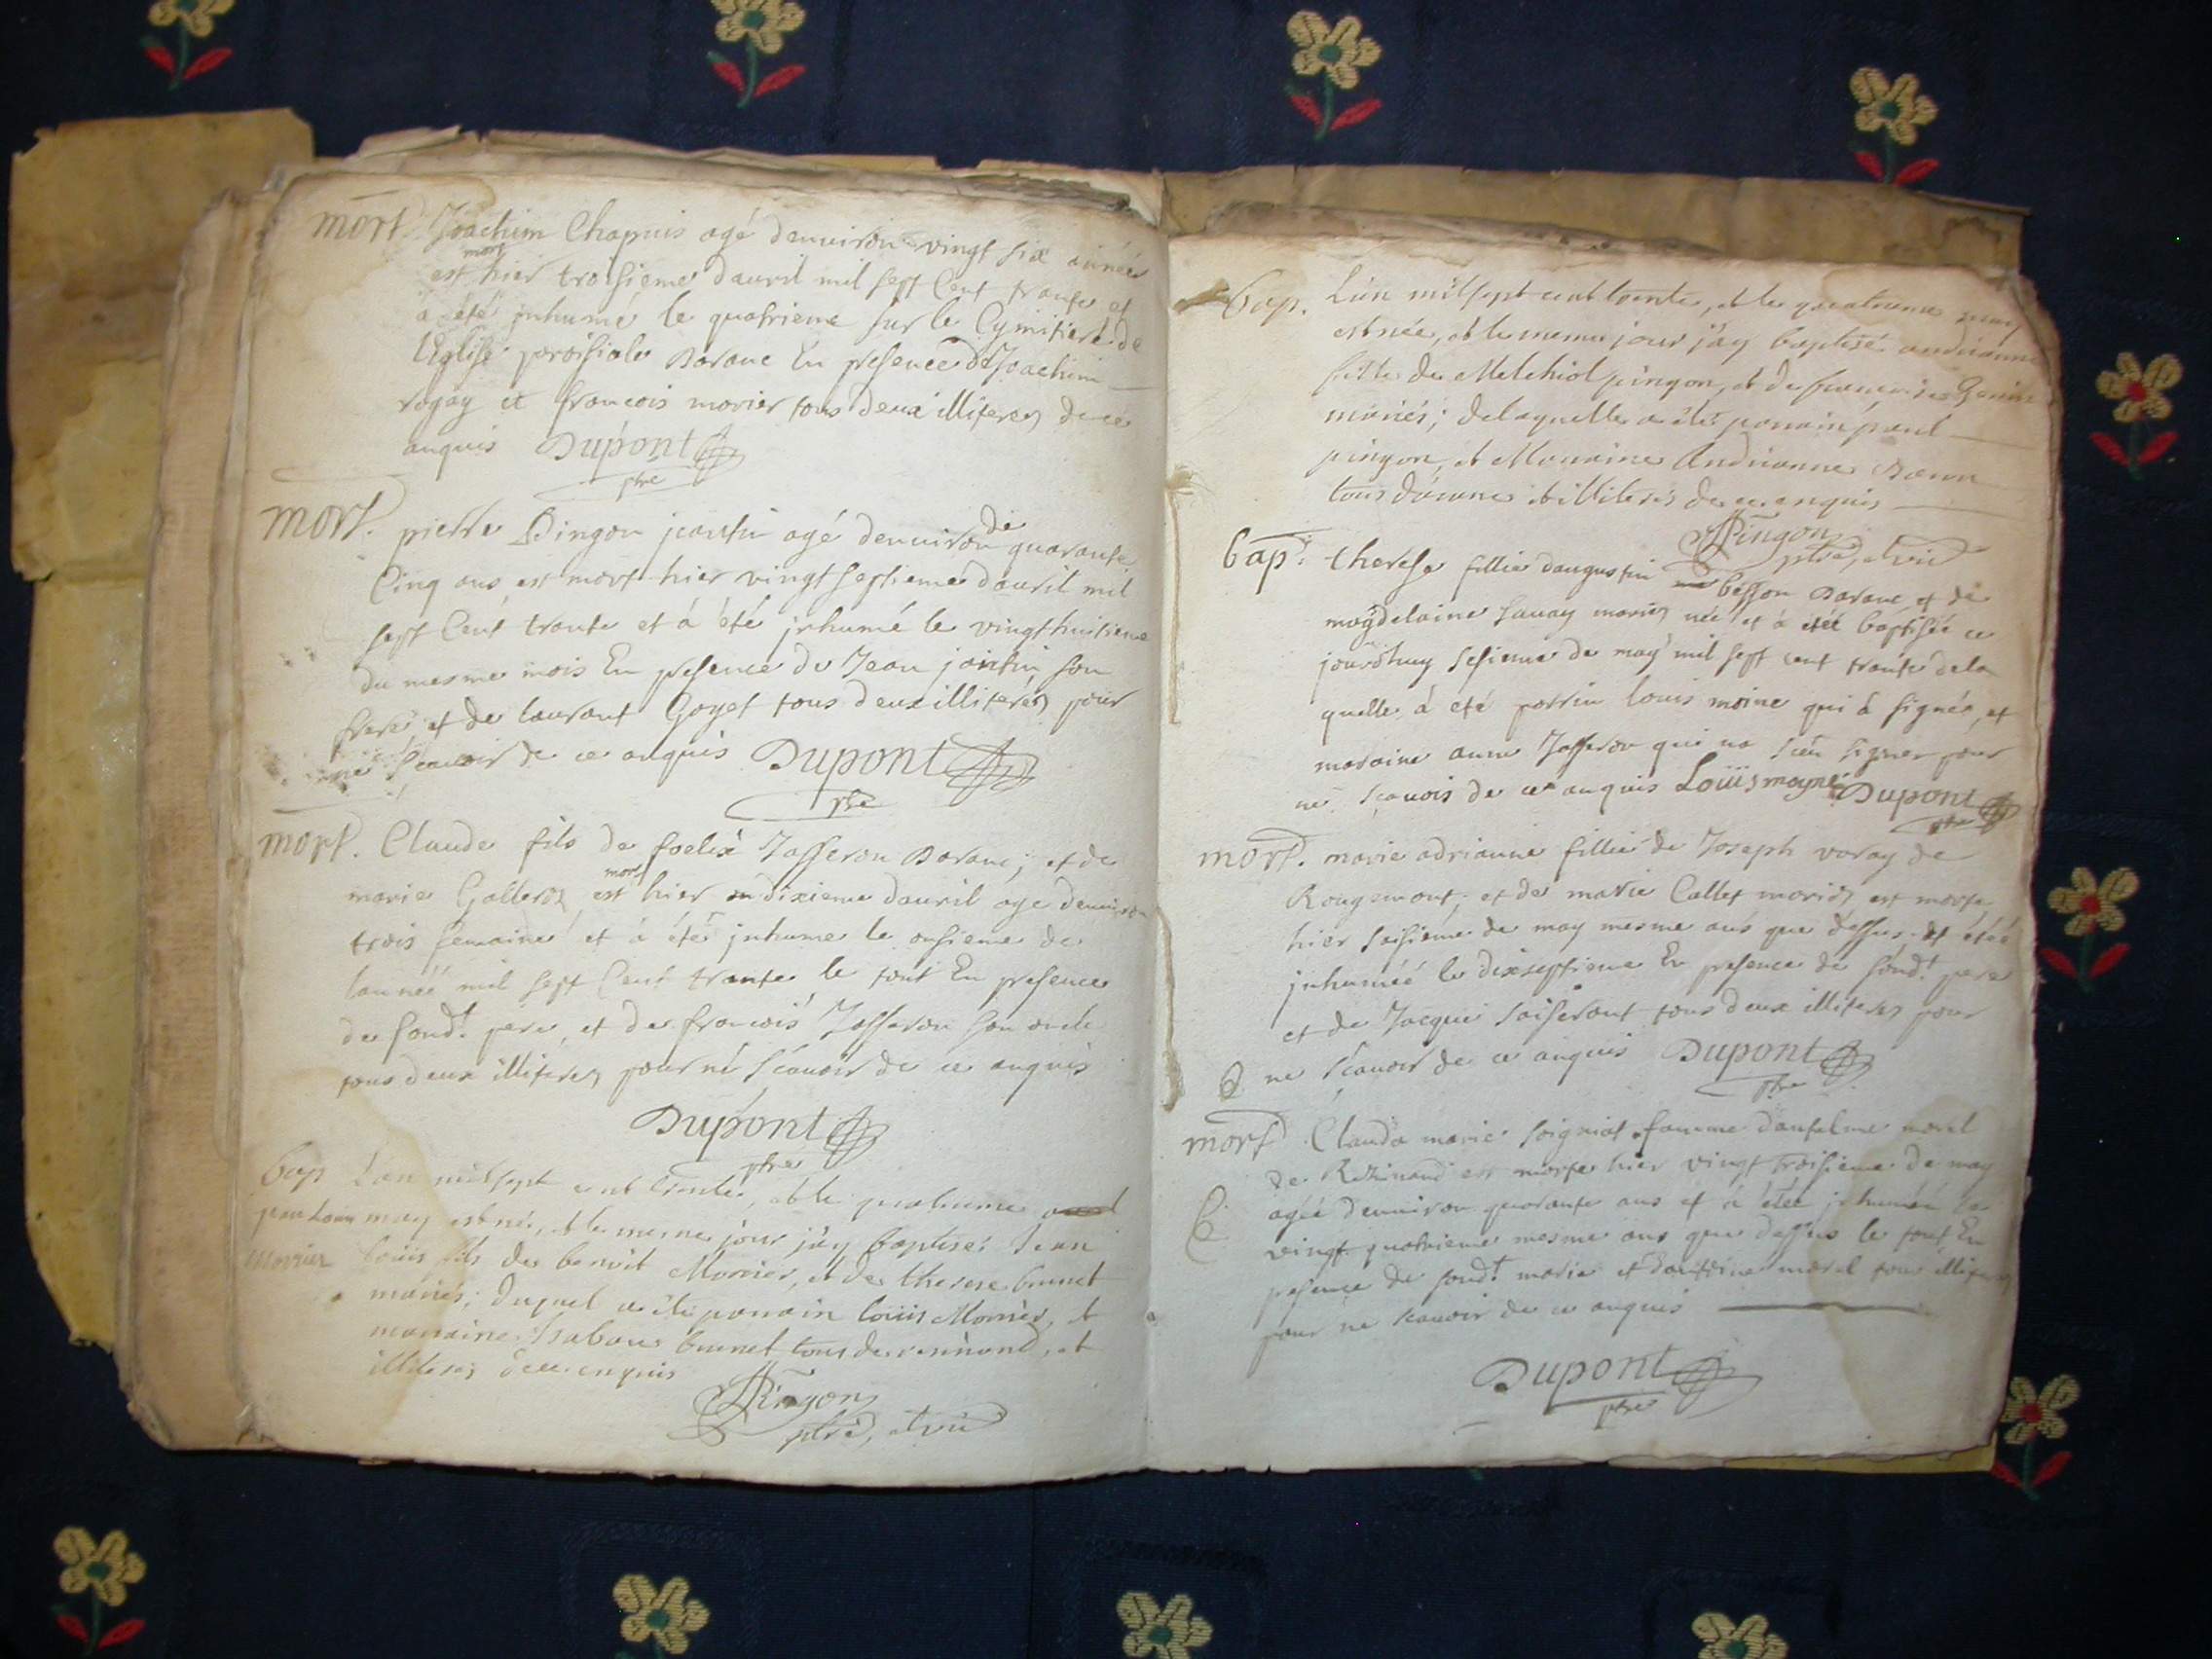 mort Joachim Chapuis agé denuiron vingt six année
mort
est hier troisieme dauril mil sept Cent trante et
à été jnhumé le quatrieme sur le Cymitiere de
l'Eglise paroissiale Daranc En presence de Joachim
rogay et francois morier tous deux illiterez de ce
anquis Dupont
ptre
mort. pierre Pingon jeantin agé denuiron de quarante
Cinq ans est mort hier vingt septieme dauril mil
sept Cent trante et à été jnhumé le vingthuitieme
du mesme mois En presence de Jean jantin son
frere et de laurant Goyet tous deux illiterez pour
ne scauoir de ce anquis Dupont
ptre
mort. Claude fils de foelix Jasseron Daranc; et de
mort
marie Gallet est hier dixieme dauril age denuiron
trois semaine et à été jnhume le onsieme de
lanneé mil sept Cent trante le tout En presence
de sond.t pere, et de francois Jasseron son oncle
tous deux illiterez pour né scauoir de ce anquis
Dupont
ptre
bap Lan mil sept cent trente, et le quatrieme
may est né, et le meme jour j'ay baptisé Jean
morier louis fils de benoit Morier, et de therese brunet
mariés; duquel a été parrain louis Morier, et
marraine Isabeau brunet tous de resinand, et
illiterez de ce enquis
Pingon
ptre, et vic
bap. L'an mil sept cent trente, et le quatrieme may
est née, et le meme jour j'ay baptisé andrianne
fille de Melchiol pingon, et de francoise Genin
mariés; de laquelle a été parrain paul
pingon, et Marraine Andrianne
tous d'aranc et illiterés de ce enquis
Pingon
ptre, et vic
bap. therese fillie daugustin besson Daranc et de
magdelaine sauay mariez née et à été baptisée ce
jourdhuy sesieme de may mil sept cent trante de la
quelle à eté parrin louis moine qui à signé, et
maraine anne Jasseron qui na sceu signer pour
ne scauois de ce anquis Loüis moyne Dupont
ptre
mort. marie adrianne fillie de Joseph varay de
Rougemont; et de marie Callet mariez est morte
hier saisieme de may mesme ans que dessus et étéé
jnhumeé le dixseptieme En presence de sond.t pere
et de Jacque saiserant tous deux illiterez pour
ne scauoir de ce anquis Dupont
ptre
mort Clauda marie soigniat famme danselme morel
de Resinand est morte hier vingt troisieme de may
agéé denuiron quarante ans et à étéé jnhuméé le
vingt quatrieme mesme ans que dessus le tout En
presence de sond.t marie et dantoine morel tous illiterez
pour ne scauoir de ce anquis
Dupont
ptre